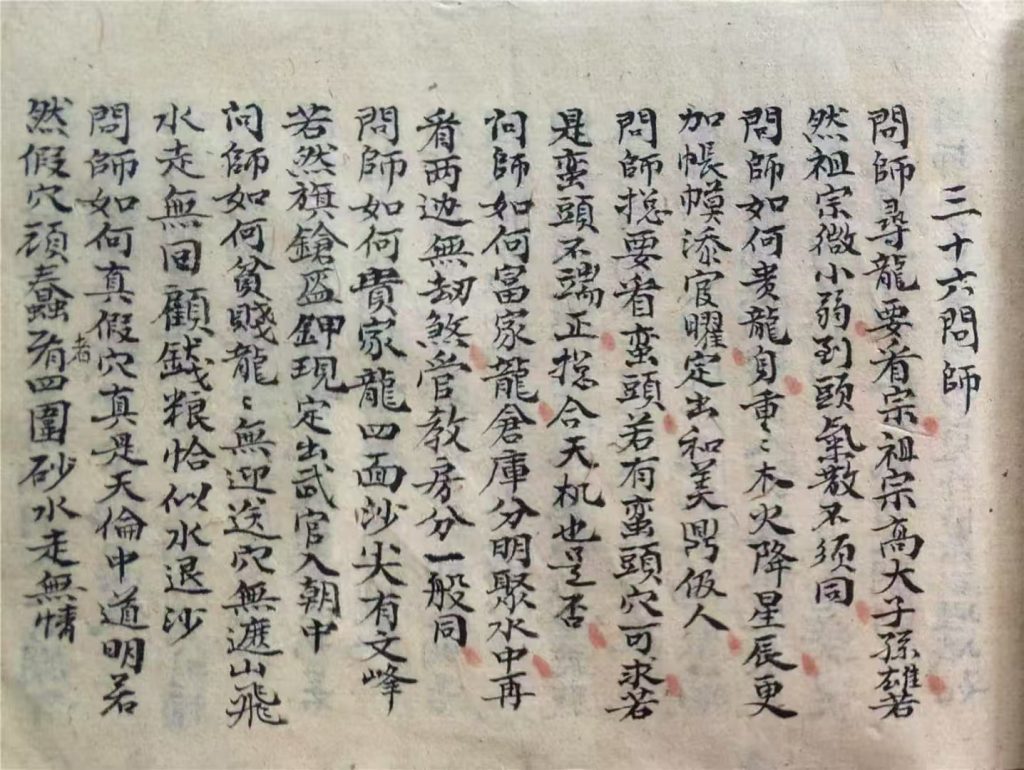 三十六問師
問師尋龍要看宗祖宗高大子孫雄若
然祖宗微小弱到頭氣散不須同
問師如何贵龍身重〻木火降星辰更
加帳幙添官曜定出和美興伋人
問師揔要看蛮頭若有蛮頭穴可求若
是蛮頭不端正揔合天机也是否
问師如何富家龍倉庫分明聚水中再
看两边無刼煞管教房分一般同
問師如何貴家龍四面沙尖有文峰
若然旗鎗盔鉀現定出武官入朝中
问師如何貧賤龍〻無迎送穴無遮山飛
水走無回顧銭粮恰似水退沙
問師如何真假穴真是天倫中道明若
然假穴頑蠢者有四圍砂水走無情